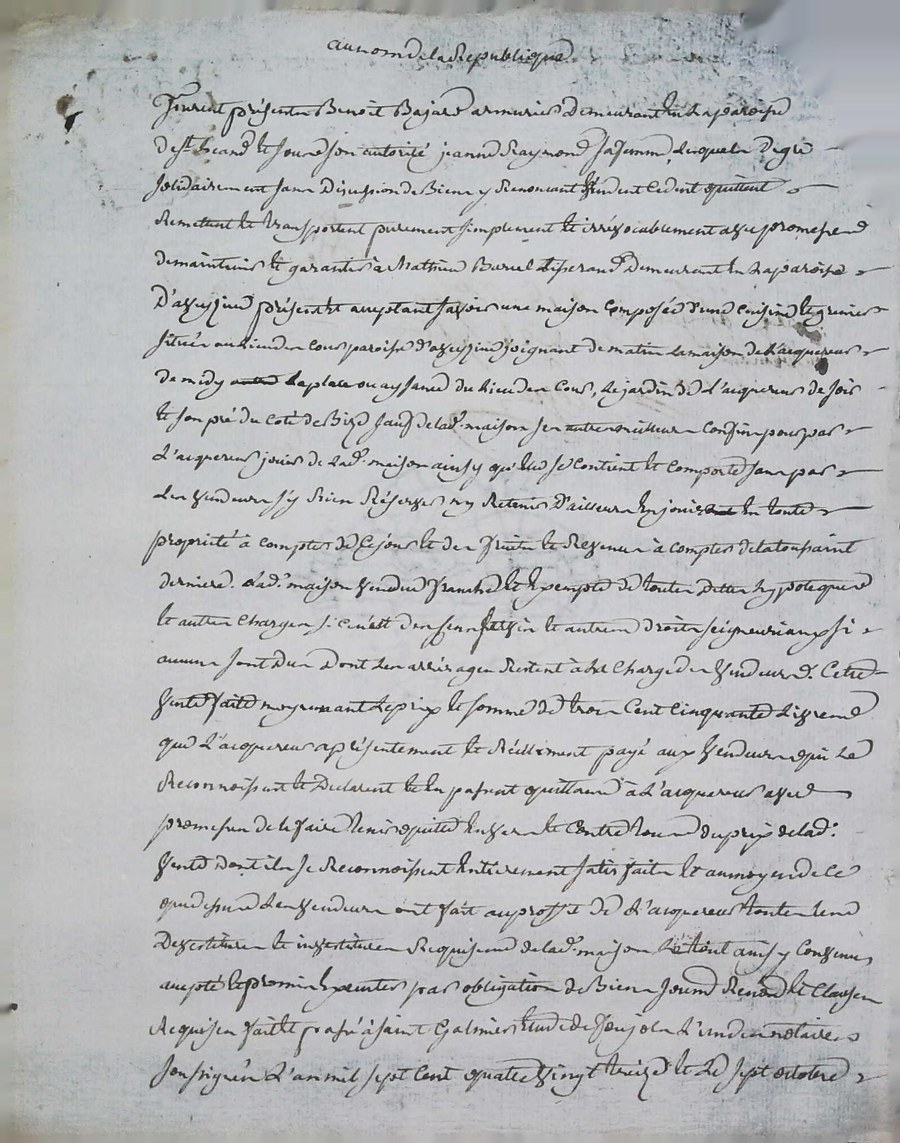 au nom de la Republique
furent présents Benoit Bajard armurier demeurant en la paroisse
de st heand et sous son autorité jeanne Raymond sa femme, lesquels de gré
solidairement sans Discussion de Biens y Renonçant vendent cedent quittent
Remettent et transportent purement simplement et irrévocablement avec promesse
de maintenir et garantir à Mathieu Barcel tisserand Demeurant en la paroisse
D'aveyzieu présent et acceptant savoir une maison Composée d'une cuisine et grenier
située au lieu des Cours paroisse d'aveyzieu joignant de matin la maison de l'acquereur
de midy la place ou aysance du lieu des Cours, le jardin de L'acquereur de soir
et son pré du coté de Bize sauf de lad. maison ses autres Confins pour par
L'acquereur jouir de lad. maison ainsy qu'elle se Contient et Comporte sans par
les vendeurs s'y Rien Réserver ny Retenir D'ailleurs en jouir en toute
proprieté à compter de ce jour et des fruits et Revenus à compter de la toussaint
derniere. Lad. maison vendue franche et exempte de toutes Dettes hypoteques
et autres Charges si ce n'est des cens servis et autres droits seigneuriaux si
aucuns sont dus Dont les arrérages Restent à la Charge des vendeurs. Cette
vente faite moyennant le prix et somme de trois Cent Cinquante Livres
que L'acquereur a présentement et Réellement payé aux vendeurs qui le
Reconnoissent et Declarent et en passent quittance à L'acquereur avec
promesse de le faire tenir quitte envers et Contre tous du prix de lad.
vente dont ils se Reconnoissent entierement satisfaits et au moyen de ce
que dessus Les vendeurs ont fait au proffit de L'acquereur toutes les
Devestitures et investitures Requises de lad. maison Le tout ainsy Convenu
accepté et promis executer par obligation de Biens Renonc. et Clauses
Requises fait et passé à saint Galmier Etude de L'un des notaires
soussignés L'an mil sept Cent quatre vingt treize et Le sept octobre